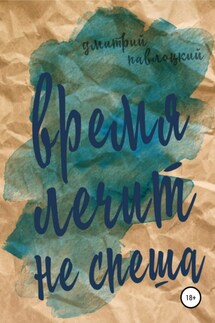 дмитрий
павлоцкий
время
лечит
не спеша
18+